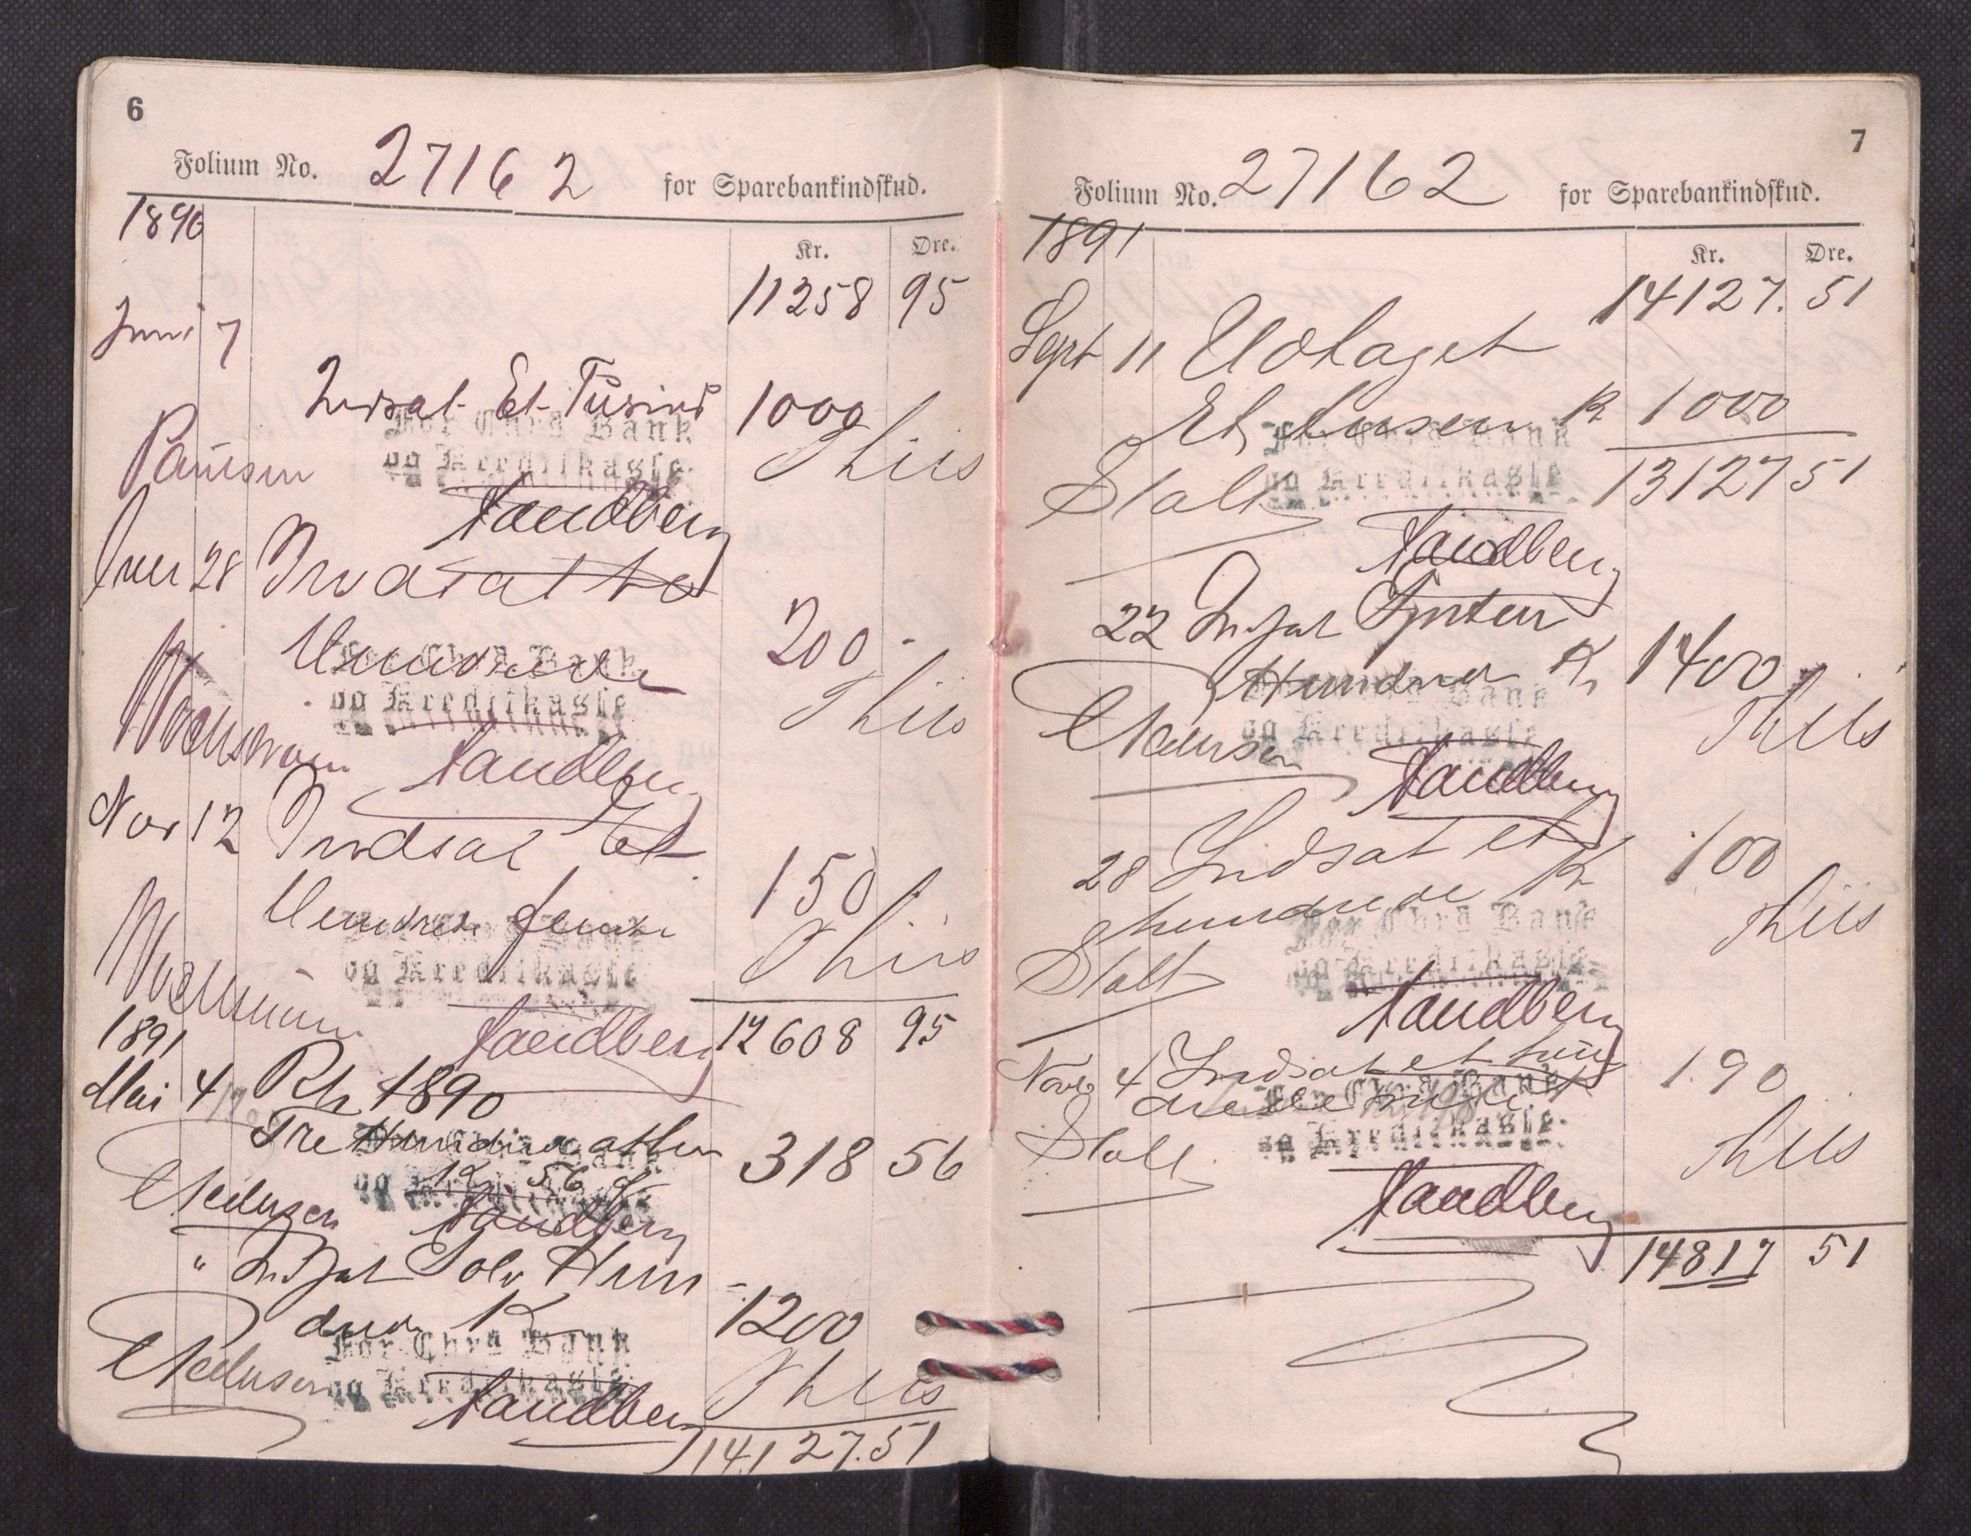 6
Folium No. 27162 for Sparebankindskud.
1890
Kr. Øre.
11258 95
Juni 7
Indsat Et Tusind 1000
For Chra Bank
og Kreditkasse
Paulsen Thiis
Sandberg
28 Indsat to
Hundrede 200 -
For Chra Bank
og Kreditkasse
Thiis
Sandberg
Nov 12 Indsat Et
Hundrede femti 150
og Kreditkasse
Thiis
Sandberg 12608 95
1891
Mai 4 Rtr 1890
Tre Hundrede atten 318 56
Kr 56 ø
og Kreditkasse
Pedersen Sandberg
" Indsat Tolv Hun-
drede Kr 1200
For Chra Bank
og Kreditkasse
Pedersen Thiis
Sandberg
14127.51
7
Folium No. 27162 for Sparebankindskud.
1891
Kr. Øre.
14127. 51
Sept 11 Udtaget
Et tusen Kr 1000
For Chra Bank
og Kreditkasse
13127 51
Stalt
Sandberg
22 Indsat Fjorten
Hundrede Kr 1400
Bank
og Kreditkasse
Pedersen Thiis
Sandberg
28 Indsat et
hundrede Kr 100
For Chra Bank
og Kreditkasse
Stalt Thiis
Sandberg
Novb 4 Indsat et hun
drede nitti Kr 190
For Chra Bank
og Kreditkasse
Stalt Thiis
Sandberg
14817 51